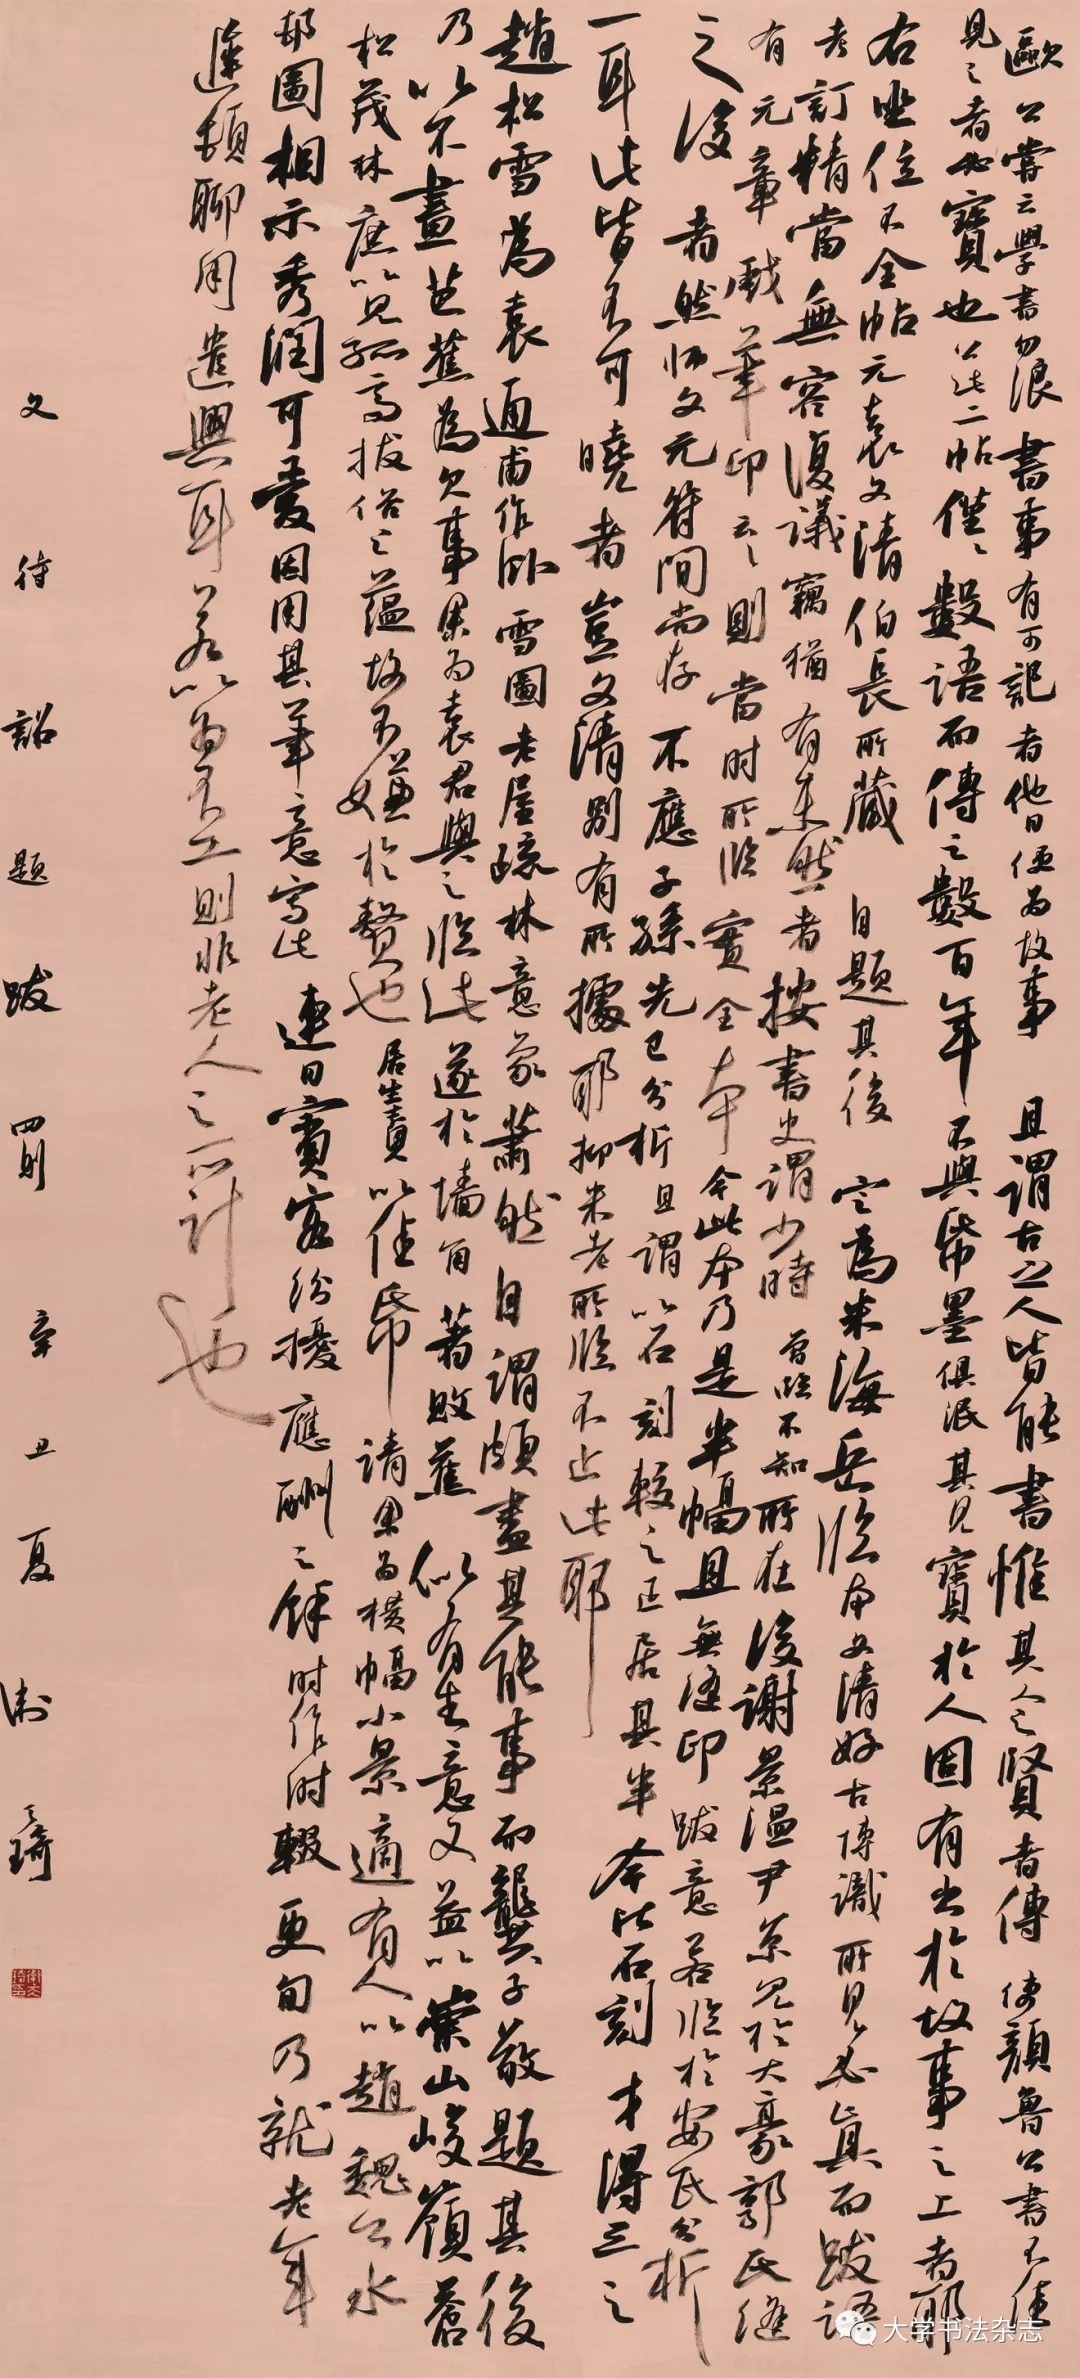 歐公嘗云學書勿浪書事有可記者他日便為故事且謂古之人皆能書惟其人之賢者傳使顏魯公書不佳
見之者必寶也公此二帖僅僅數語而傳之數百年不與紙墨俱泯其見寶於人固有出於故事之上者耶
右坐位不全帖元袁文清伯長所藏自題其後定為米海岳臨本文清好古博識所見必真而跋語
考訂精當無容復議竊猶有未然者按書史謂少時曾臨不知所在後謝景溫尹京見於大豪郭氏縫
有元章戲筆印云云則當時所臨實全本今此本乃是半幅且無縫印跋意若臨於安氏分析
之後者然師文元符間尚存不應子孫先已分析且謂以石刻較之正居其半今比石刻才得三之
一耳此皆不可曉者豈文清別有所據耶抑米老所臨不止此耶
趙松雪為袁通甫作臥雪圖老屋疏林意象蕭然自謂頗盡其能事而龔子敬題其後
乃以不畫芭蕉為欠事果為袁君與之臨此遂於墻角著敗蕉似有生意又益以崇山峻嶺蒼
松茂林庶以見孤高拔俗之蘊故不嫌於贅也居生責以佳紙請果為橫幅小景適有人以趙魏公水
邨圖相示秀潤可愛因用其筆意寫此連日賓客紛擾應酬之餘時作時輟更旬乃就老年
遲頓聊用遣興耳若以為不工則非老人之所計也
文待詔題跋四則辛丑夏衛之琦
大学书法杂志